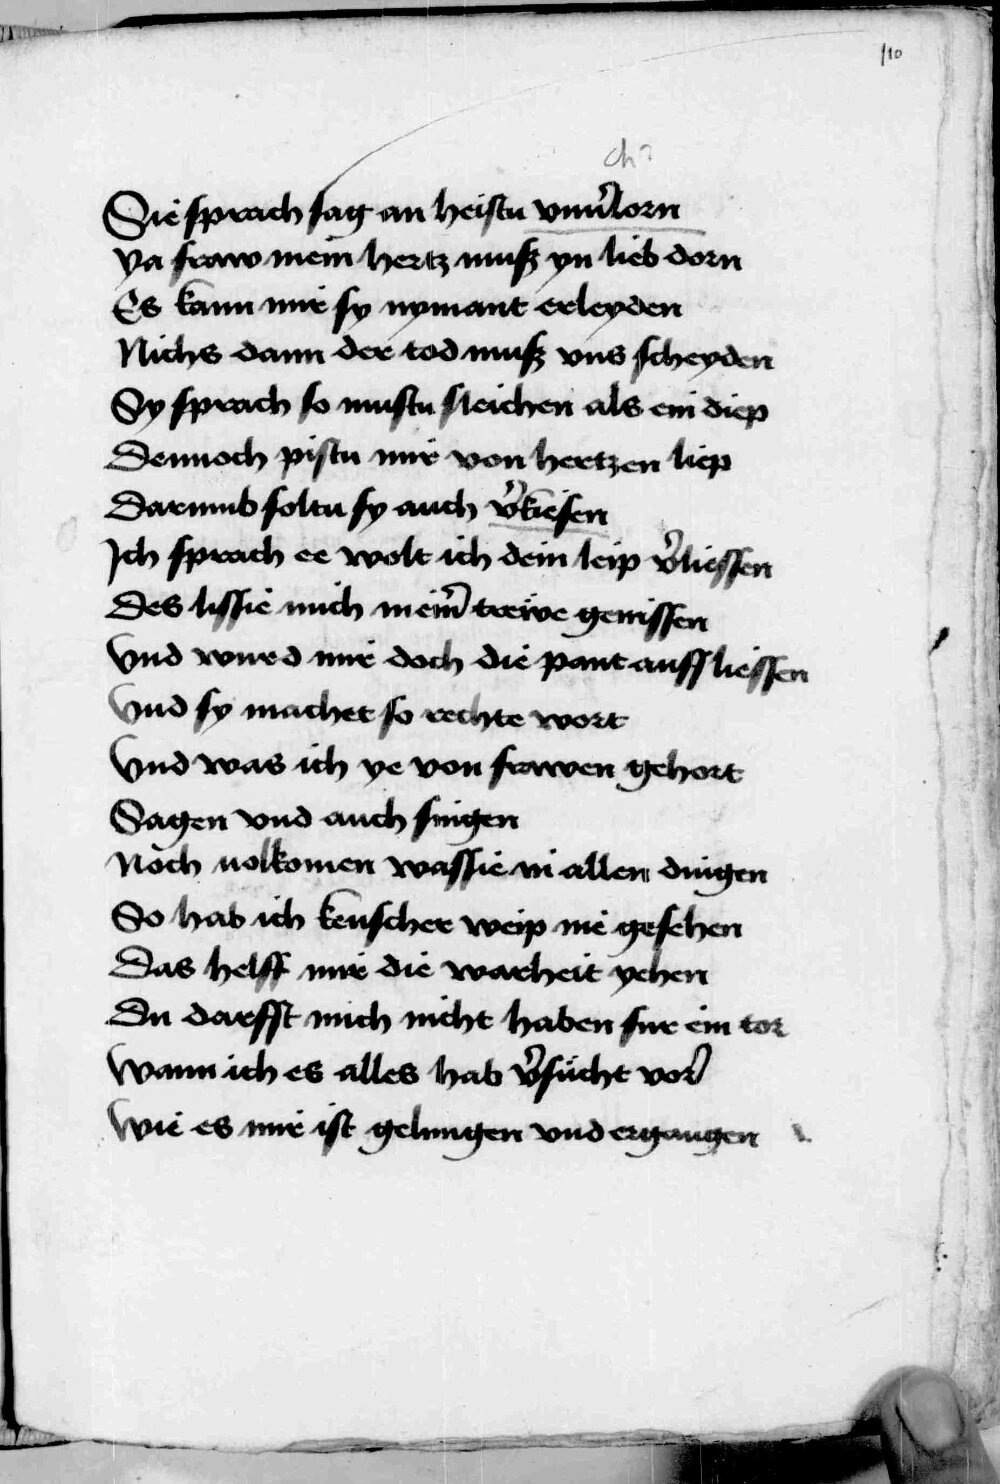 110
ch?
Sie sprach sag an heistu vnuͦ̉lorn
Ya fraw mein hertz muß yn lieb dorn
Es kann mir sy nymant erleyden
Nichs dann der tod muß vns scheyden
Sy sprach so mustu sleichen als ein diep
Dennoch pistu mir von hertzen liep
Darumb soltu sy auch v̉kiesen
Ich sprach ee wolt ich dein leip v̉liessen
Des lissie mich meinr̄ trewe genissen
Vnd wurd mir doch die pant auff liessen
Vnd sy machet so rechte wort
Vnd was ich ye von frawen gehort
Sagen vnd auch singen
Noch uolkomen wassie in allen dingen
So hab ich keuscher weip nie gesehen
Das helff mir die warheit yehen
Du darfft mich nicht haben fur ein tor
Wann ich es alles hab v̉sucht vor
Wie es mir ist gelungen vnd ergangen